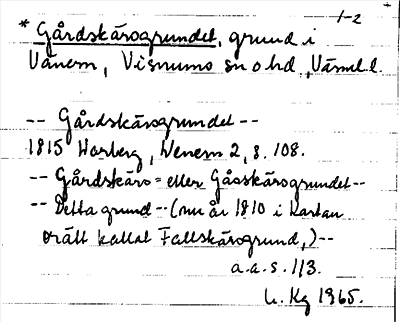 1-2
* Gårdskärsgrundet, grund i
Vänern, Visnums sn o hd, Värml. l.
-- Gårdskärsgrundet --
1815 Warberg, Wenern 2, s. 108.
-- Gårdskärs= eller Gåsskärsgrundet --
-- Detta grund -- (nu år 1810 i Kartan
orätt kallat Fallskärsgrund,) --
a.a. s. 113.
1965.